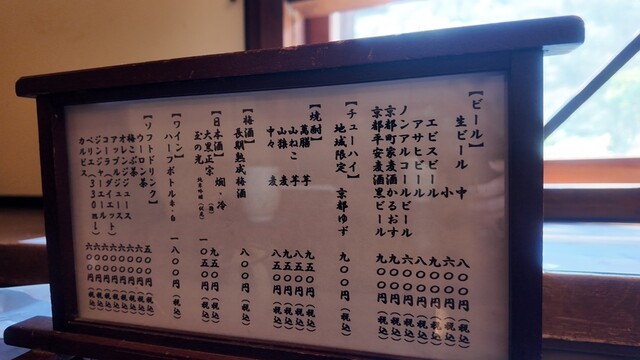 【ビール】
生ビール 中 八〇〇円(税込)
小 六〇〇円(税込)
エビスビール 九〇〇円(税込)
アサヒビール 八〇〇円(税込)
ノンアルコールビール 六〇〇円(税込)
京都町家麦酒かるおす 九〇〇円(税込)
京都平安麦酒黒ビール 九〇〇円(税込)
【チューハイ】
地域限定 京都ゆず 九〇〇円(税込)
【焼酎】
萬膳 芋 九五〇円(税込)
山ねこ 芋 八五〇円(税込)
山猿 麦 九五〇円(税込)
中々 麦 八五〇円(税込)
【梅酒】
長期熟成梅酒 八〇〇円(税込)
【日本酒】
大黒正宗 燗 冷 九五〇円(税込)
玉の光 (冷) 一〇五〇円(税込)
【ワイン】
ハーフボトル赤・白 一八〇〇円(税込)
【ソフトドリンク】
ウーロン茶 五〇〇円(税込)
梅こぶ茶 六〇〇円(税込)
オレンジジュース 六〇〇円(税込)
アップルジュース 六〇〇円(税込)
コーラ 六〇〇円(税込)
ジンジャーエール 六〇〇円(税込)
ペリエ(330ml) 六〇〇円(税込)
カルピス 六〇〇円(税込)